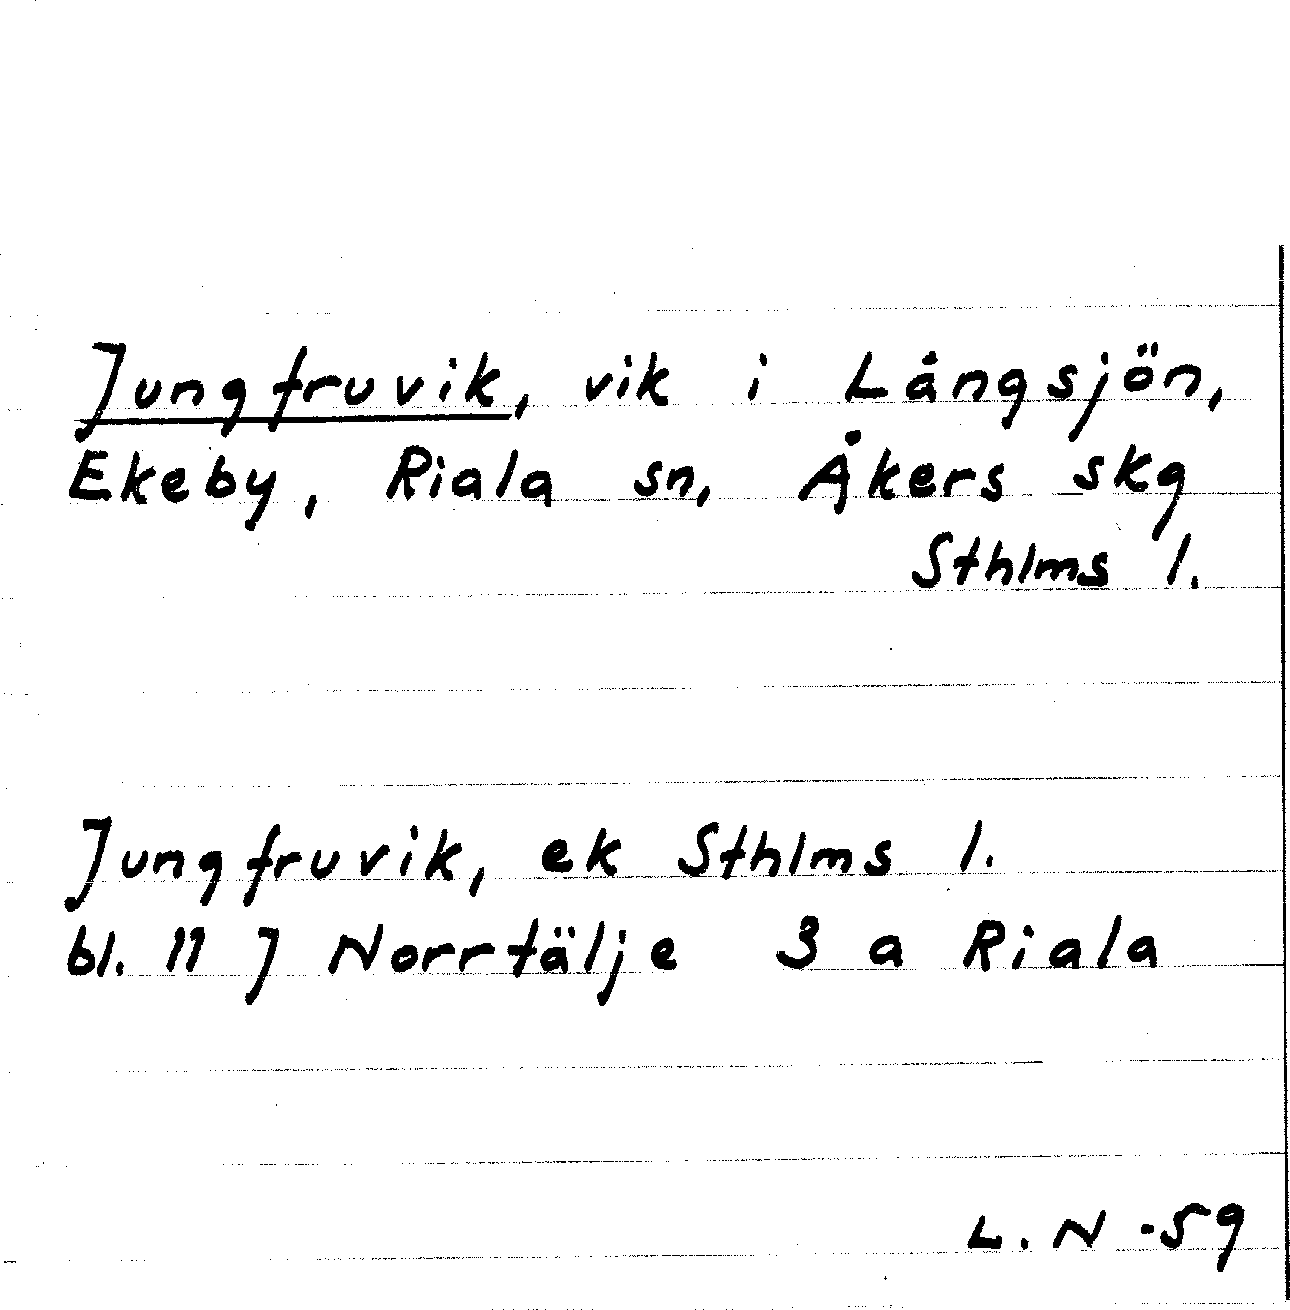 Jungfruvik, vik i Långsjön,
Ekeby, Riala sn, Åkers skg
Sthlms l.
Jungfruvik, ek Sthlms l.
bl. 11 J Norrtälje 3 a Riala
L. N -59